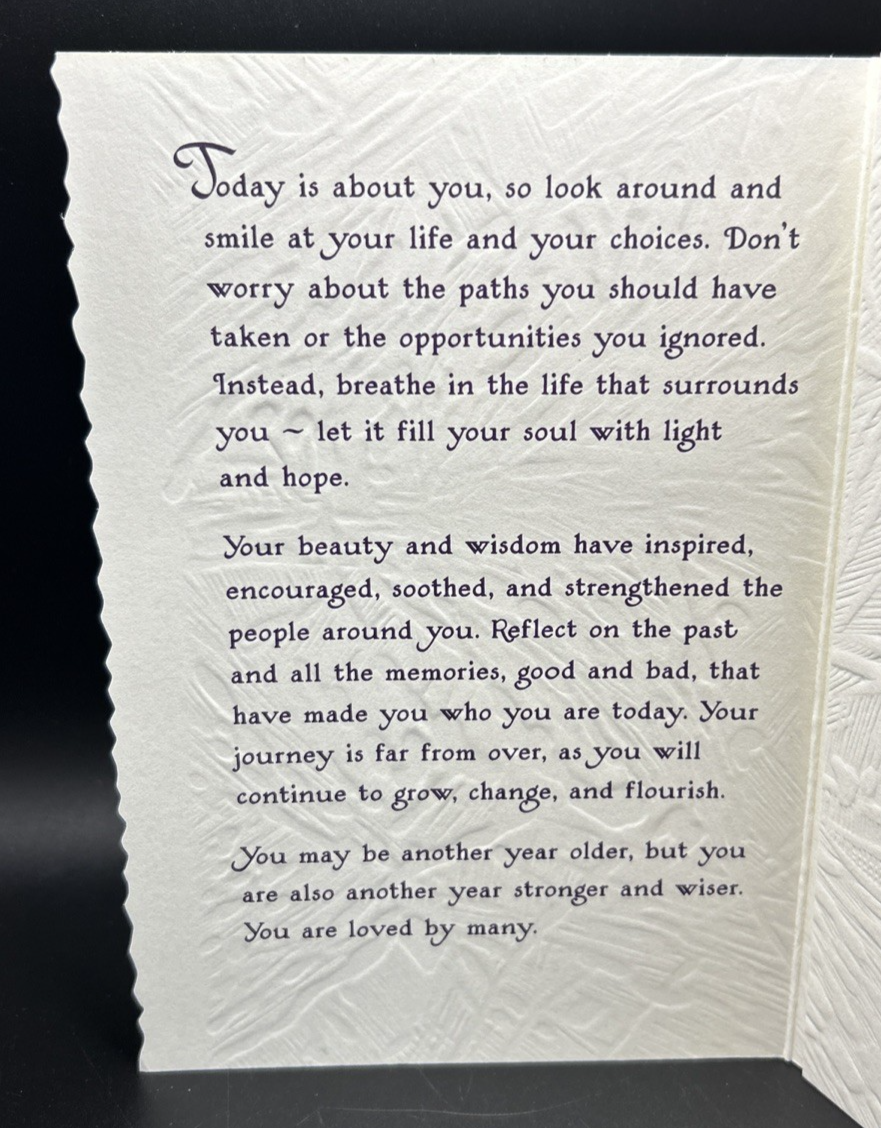 Today is about you, so look around and
smile at your life and your choices. Don't
worry about the paths you should have
taken or the opportunities you ignored.
Instead, breathe in the life that surrounds
you ~ let it fill your soul with light
and hope.
Your beauty and wisdom have inspired,
encouraged, soothed, and strengthened the
people around you. Reflect on the past
and all the memories, good and bad, that
have made you who you are today. Your
journey is far from over, as you will
continue to grow, change, and flourish.
You may be another year older, but you
are also another year stronger and wiser.
You are loved by many.